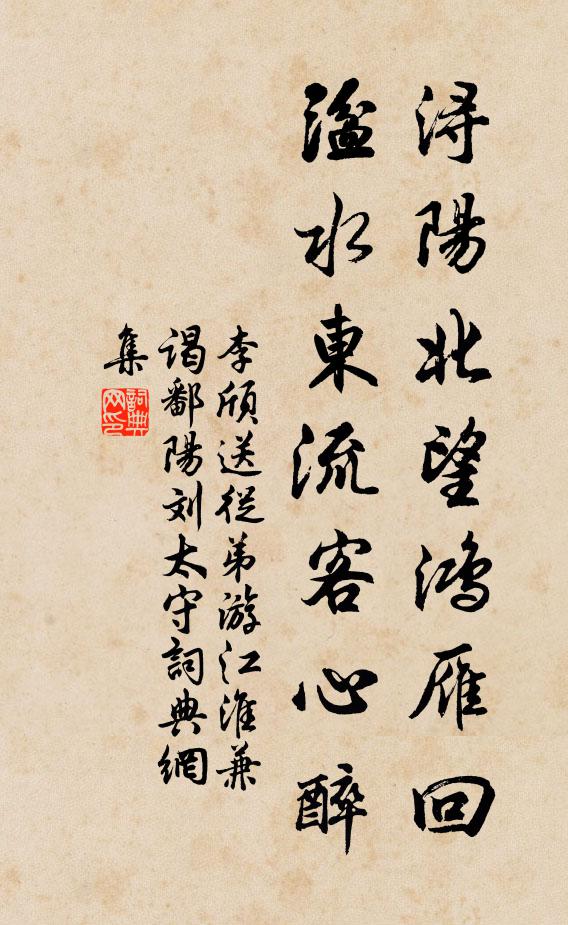 浔陽北望鴻雁回
湓水東流客心醉
李颀送從弟游江淮兼
谒鄱陽刘太守詞典網
集
詞典
网印